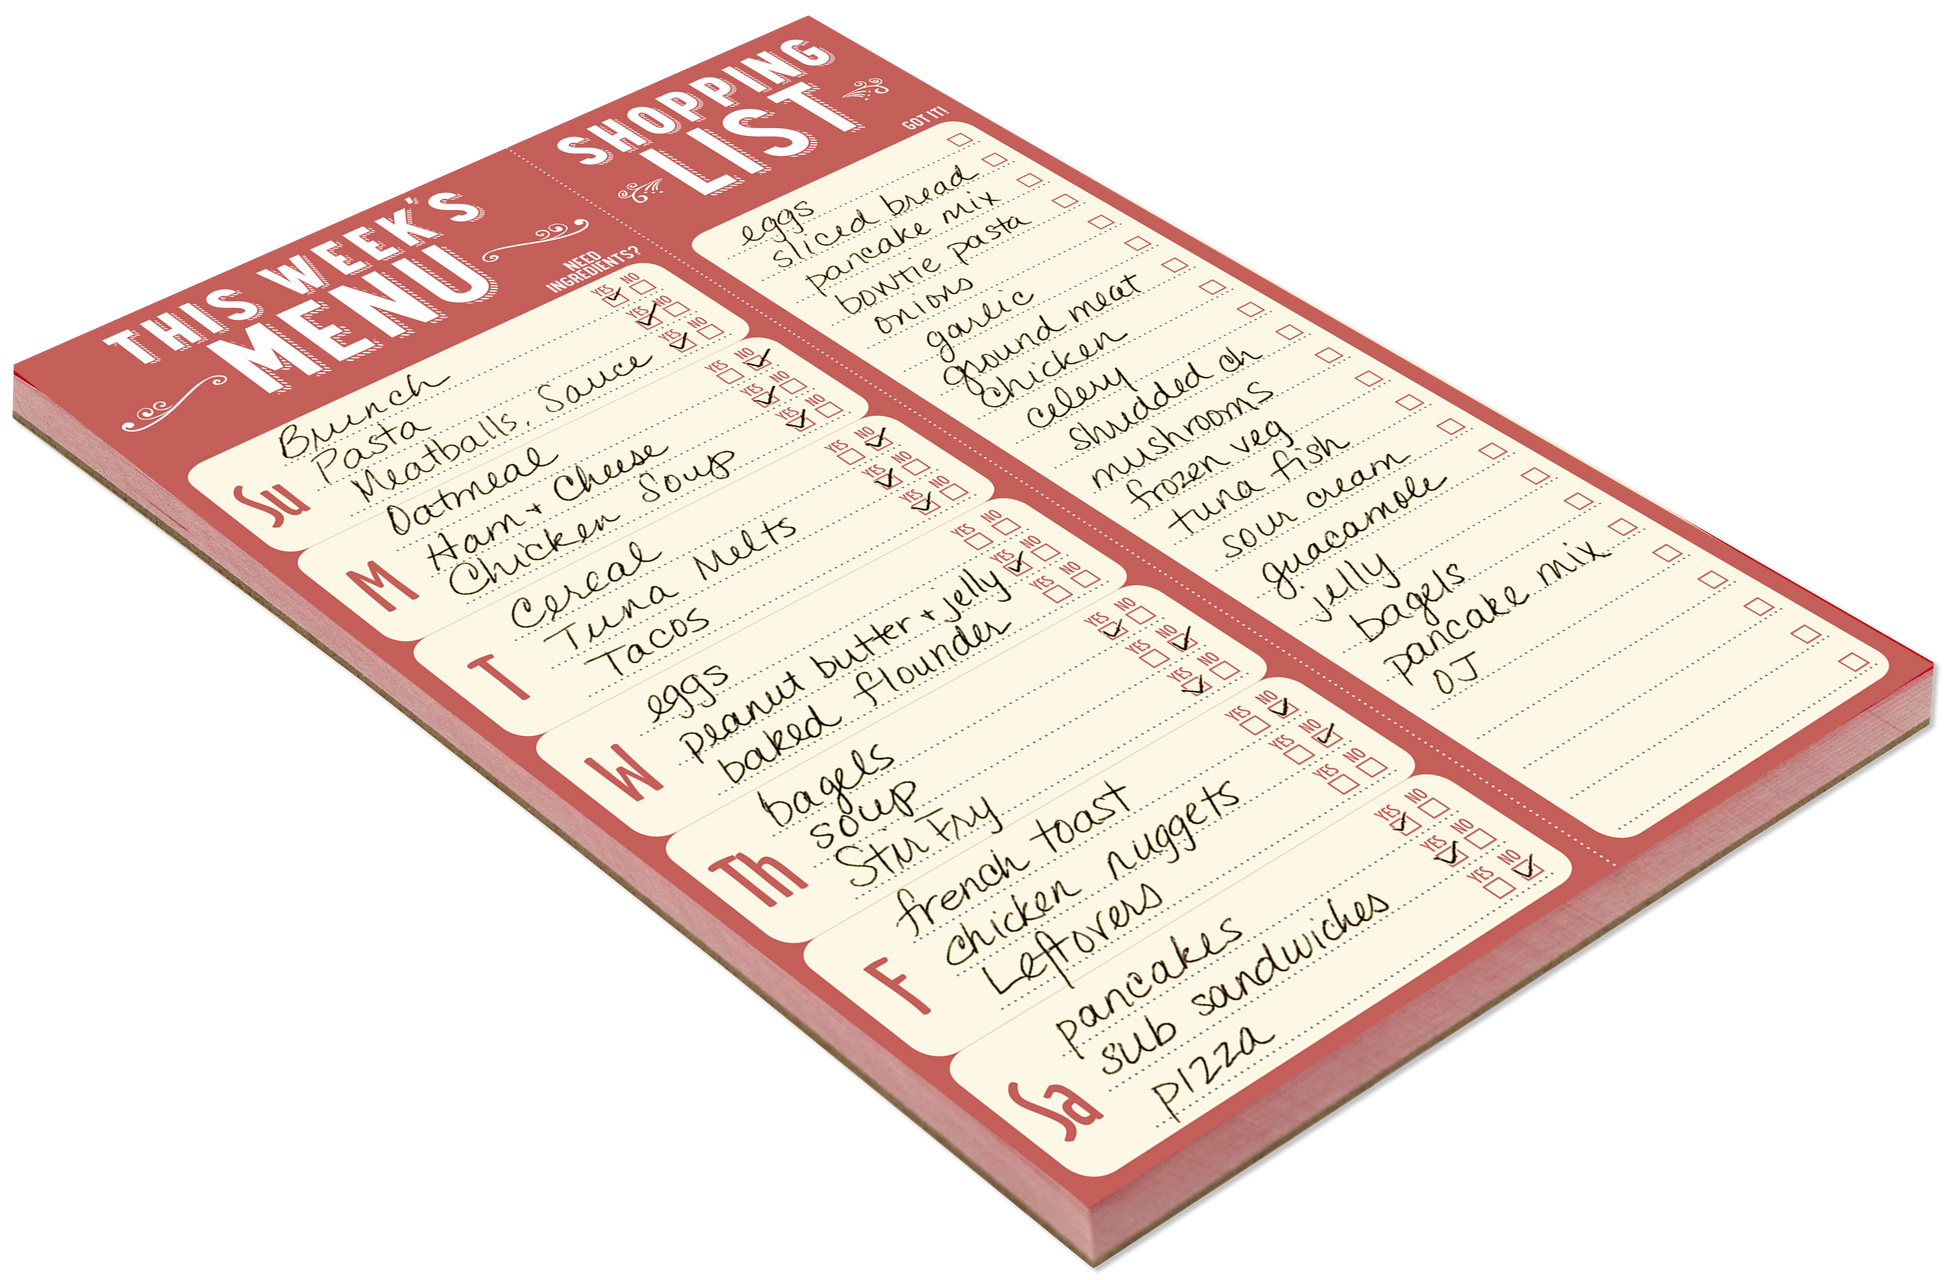 THIS WEEK'S
MENU
NEED
INGREDIENTS?
Su
Brunch YES NO
Pasta YES NO
Meatballs, Sauce YES NO
M
Oatmeal YES NO
Ham + Cheese YES NO
Chicken Soup YES NO
T
Cereal YES NO
Tuna Melts YES NO
Tacos YES NO
W
eggs YES NO
peanut butter + jelly YES NO
baked flounder YES NO
Th
bagels YES NO
soup YES NO
Stir Fry YES NO
F
french toast YES NO
chicken nuggets YES NO
Leftovers YES NO
Sa
pancakes YES NO
sub sandwiches YES NO
pizza YES NO
SHOPPING
LIST
GOT IT!
eggs
sliced bread
pancake mix
bowtie pasta
onions
garlic
ground meat
chicken
celery
shredded ch
mushrooms
frozen veg
tuna fish
sour cream
guacamole
jelly
bagels
pancake mix
OJ